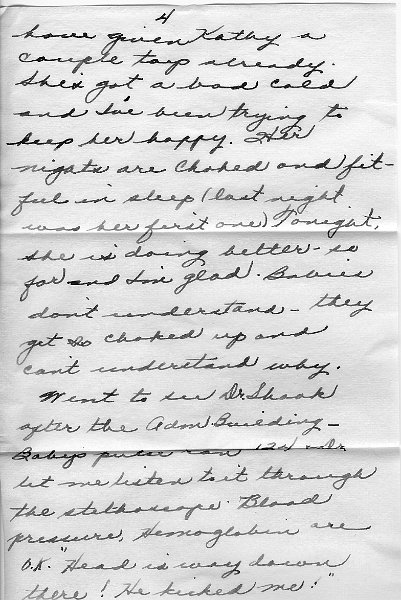 4
have given Kathy a
couple tap already.
She's got a bad cold
and I've been trying to
keep her happy. Her
nights are choked and fit-
ful in sleep (last night
was her first one) Tonight,
she is doing better - so
far and I'm glad. Babies
don't understand - they
get so choked up and
can't understand why.
Went to see Dr. Shook
after the Adm. Building -
Baby's pulse ran 124 - Dr.
let me listen to it through
the stethoscope. Blood
pressure, Hemoglobin are
O.K. "Head is way down
there! He kicked me!"